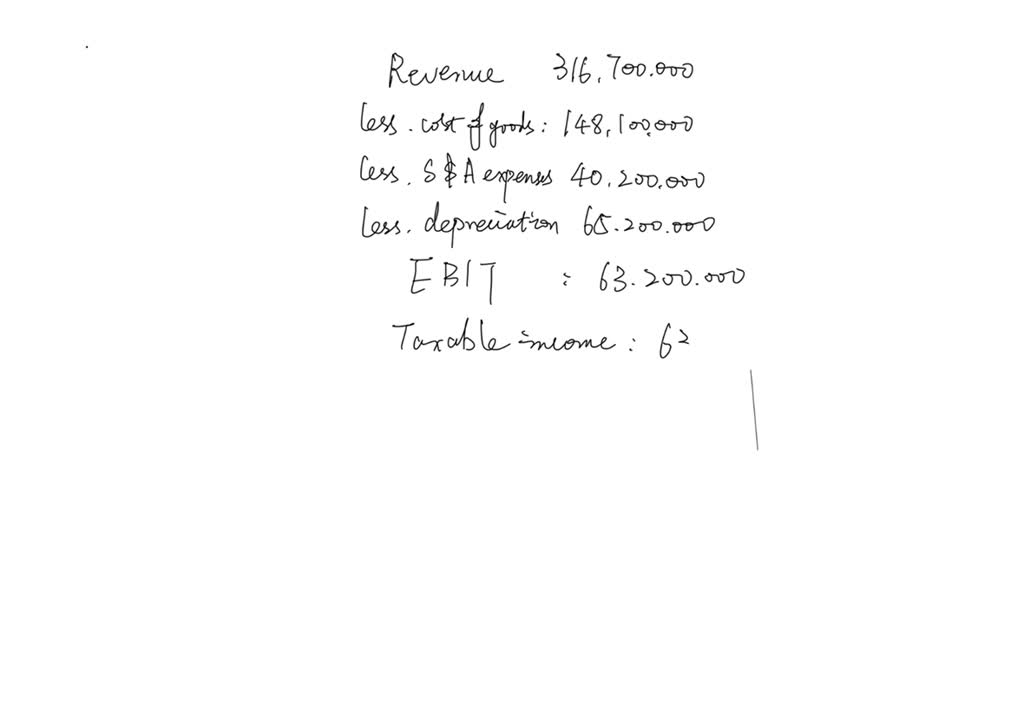 Revenue 316,700.000
less. cost of goods: 148,100,000
less. S&A expenses 40,200.000
less. depreciation 65.200.000
EBIT : 63.200.000
Taxable income: 62